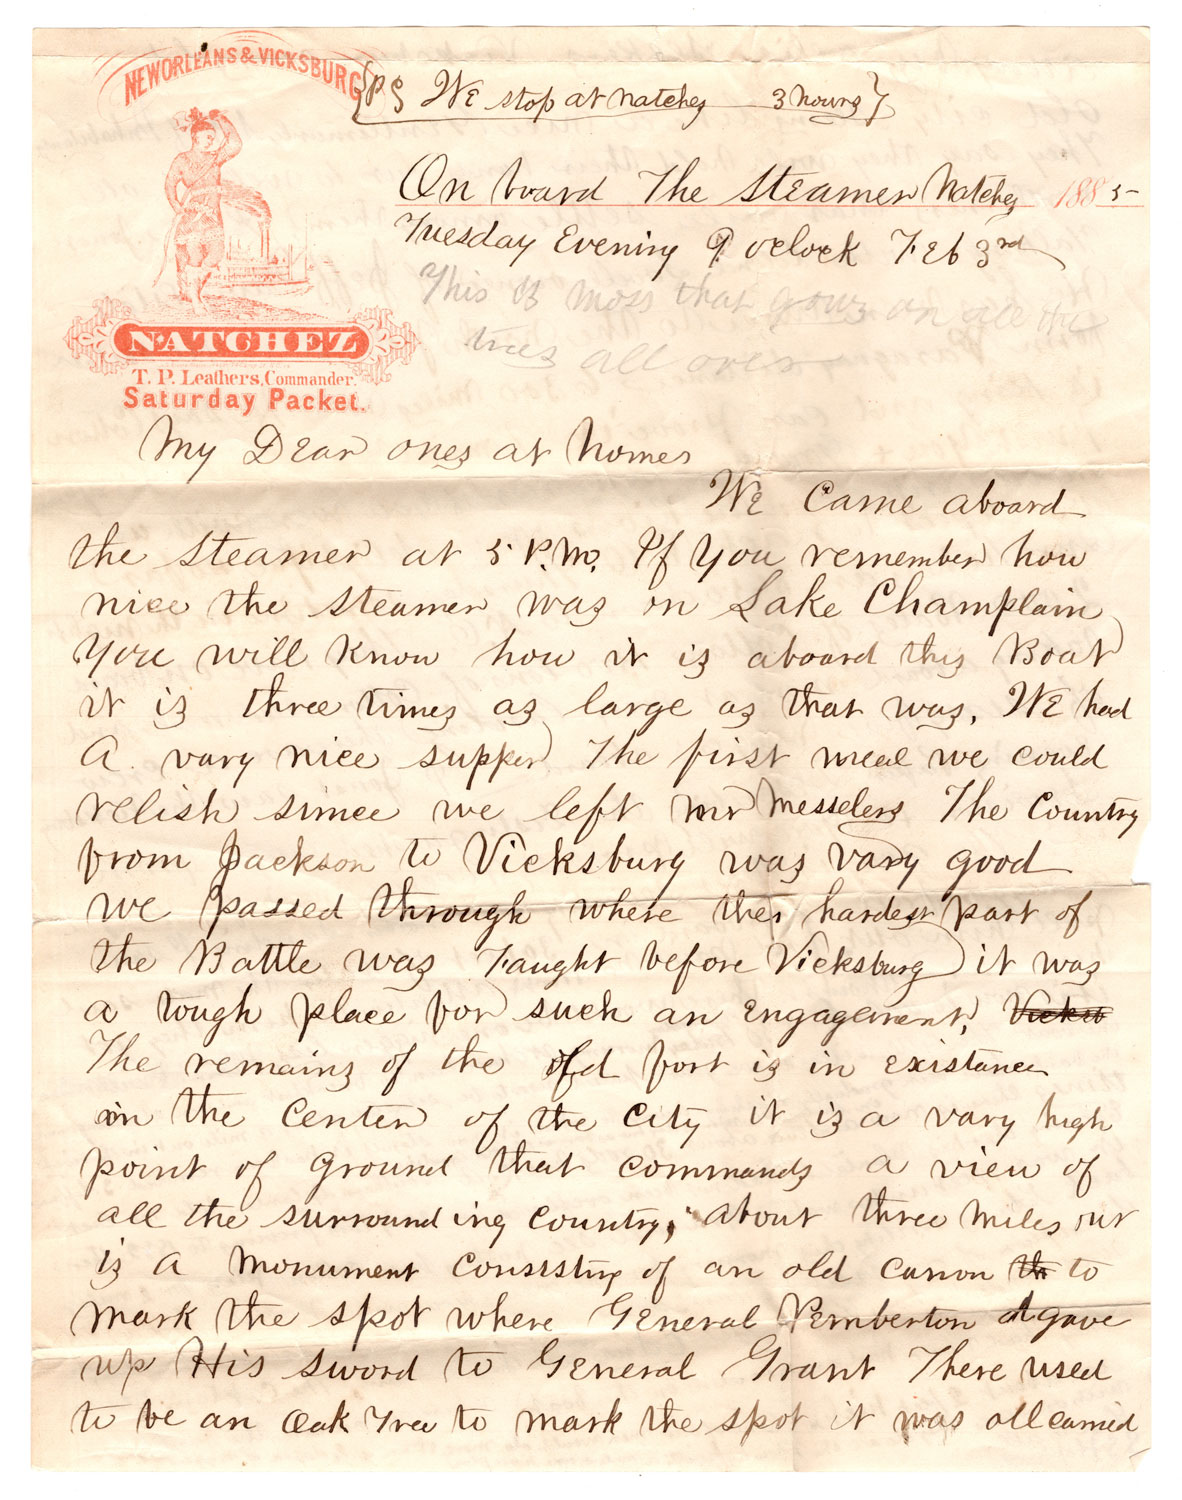 NEW ORLEANS & VICKSBURG
{PS We stop at Natchez 3 hours}
On board The Steamer Natchez 1885
Tuesday Evening 9 oclock Feb 3rd
This is moss that grows on all the
trees all over
NATCHEZ
T. P. Leathers, Commander.
Saturday Packet.
My Dear ones at home
We Came aboard
the Steamer at 5 P.M. If you remember how
nice the Steamer was on Lake Champlain
You will know how it is aboard this Boat
it is three times as large as that was. We had
A vary nice supper The first meal we could
relish since we left Mr Messelers The Country
from Jackson to Vicksburg was vary good
we passed through where the hardest part of
the Battle was Faught before Vicksburg it was
a tough place for such an Engagement, Vicksb
The remains of the old fort is in existance
in the Center of the City it is a vary high
point of ground that commands a view of
all the surrounding country, about three miles out
is a Monument Consisting of an old canon th to
Mark the spot where General Pemberton gave
up His sword to General Grant There used
to be an Oak Tree to mark the spot it was all carried